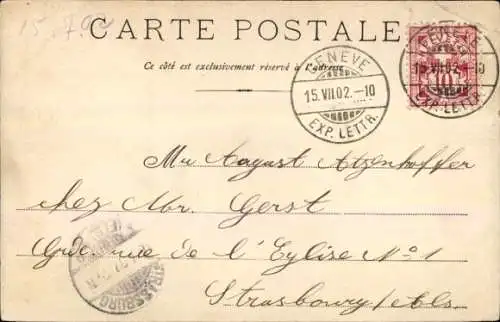 15.7.92
CARTE POSTALE
Ce côté est exclusivement réservé à l'adresse
GENÈVE
15.VII.02.-10
EXP. LETTR.
15.VII.02.-10
EXP. LETTR.
10
Mr August Atzenhoffer
chez Mr. Gerst
de l'Eglise No 1
Strasbourg /Els.
STRASSBURG